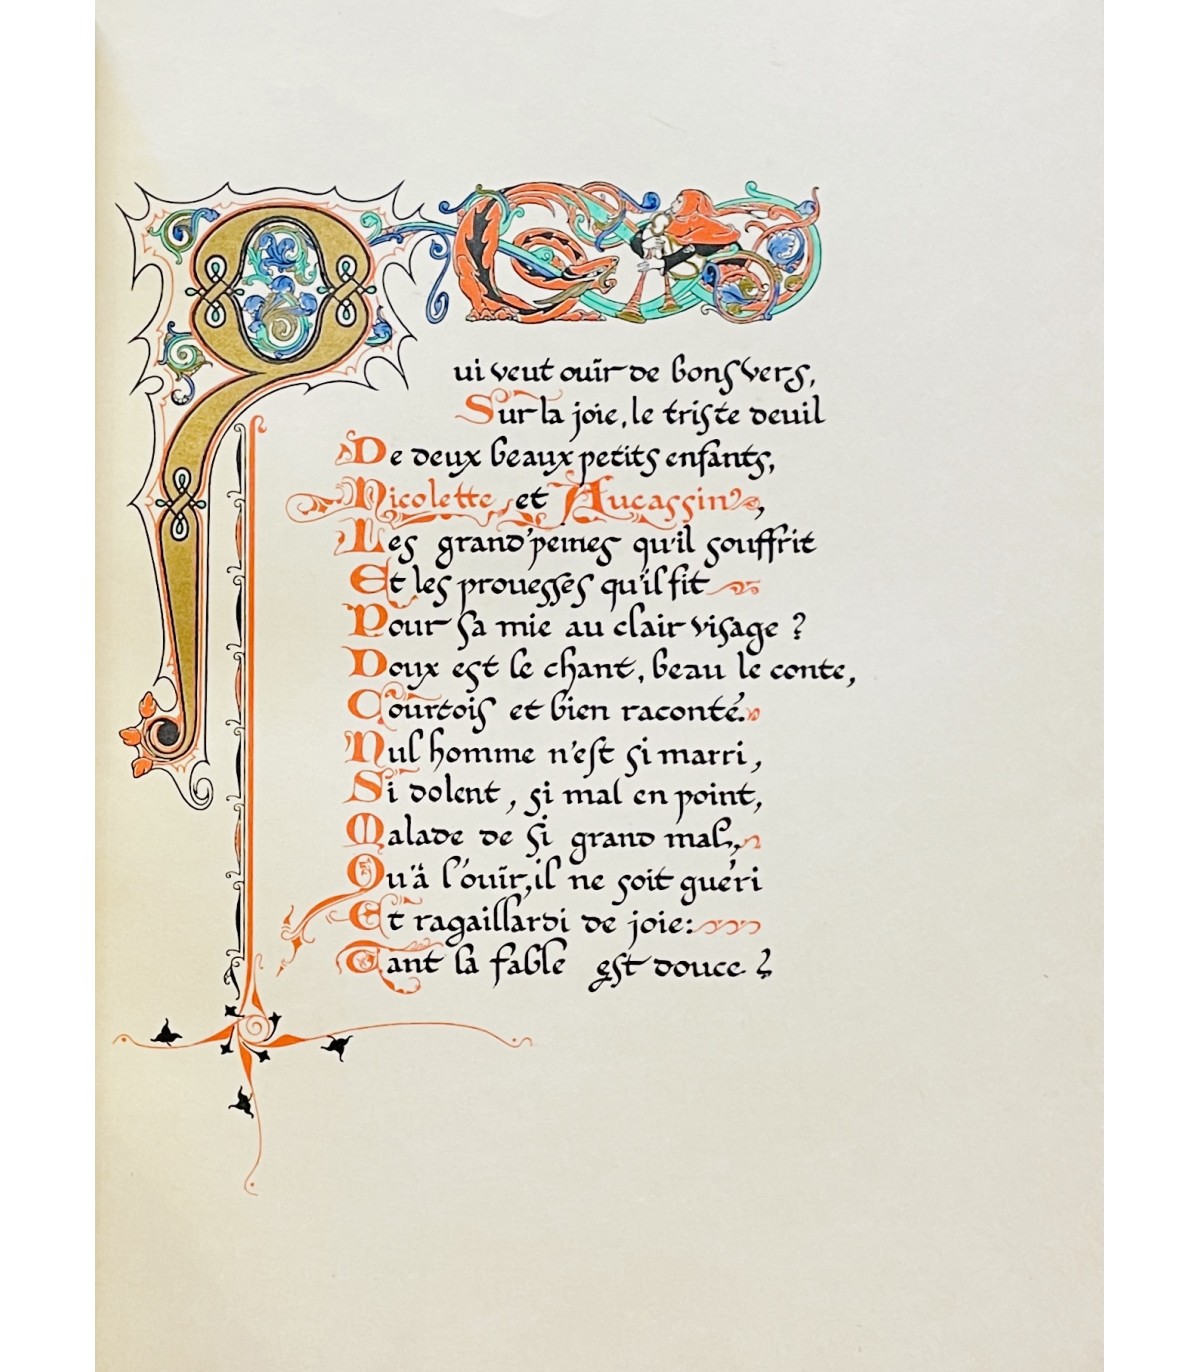 Qui veut ouïr de bons vers,
Sur la joie, le triste deuil
De deux beaux petits enfants,
Nicolette et Aucassin,
Les grand'peines qu'il souffrit
Et les prouesses qu'il fit
Pour sa mie au clair visage ?
Doux est le chant, beau le conte,
Courtois et bien raconté.
Nul homme n'est si marri,
Si dolent, si mal en point,
Malade de si grand mal,
Qu'à l'ouïr, il ne soit guéri
Et ragaillardi de joie:
Tant la fable est douce ?